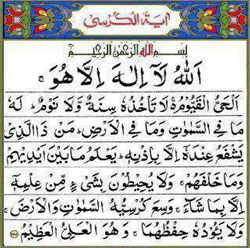 آیة الکرسی
بِسْمِ اللّٰهِ الرَّحْمٰنِ الرَّحِیْمِ
اَللّٰهُ لَاۤ اِلٰهَ اِلَّا هُوَ
اَلْحَیُّ الْقَیُّوْمُ لَا تَاْخُذُهٗ سِنَةٌ وَّلَا نَوْمٌ لَهٗ
مَا فِی السَّمٰوٰتِ وَمَا فِی الْاَرْضِ مَنْ ذَا الَّذِیْ
یَشْفَعُ عِنْدَهٗۤ اِلَّا بِاِذْنِهٖ یَعْلَمُ مَا بَیْنَ اَیْدِیْهِمْ
وَمَا خَلْفَهُمْ وَلَا یُحِیْطُوْنَ بِشَیْءٍ مِّنْ عِلْمِهٖۤ
اِلَّا بِمَا شَآءَ وَسِعَ کُرْسِیُّهُ السَّمٰوٰتِ وَالْاَرْضَ
وَلَا یَئُوْدُهٗ حِفْظُهُمَا وَهُوَ الْعَلِیُّ الْعَظِیْمُ